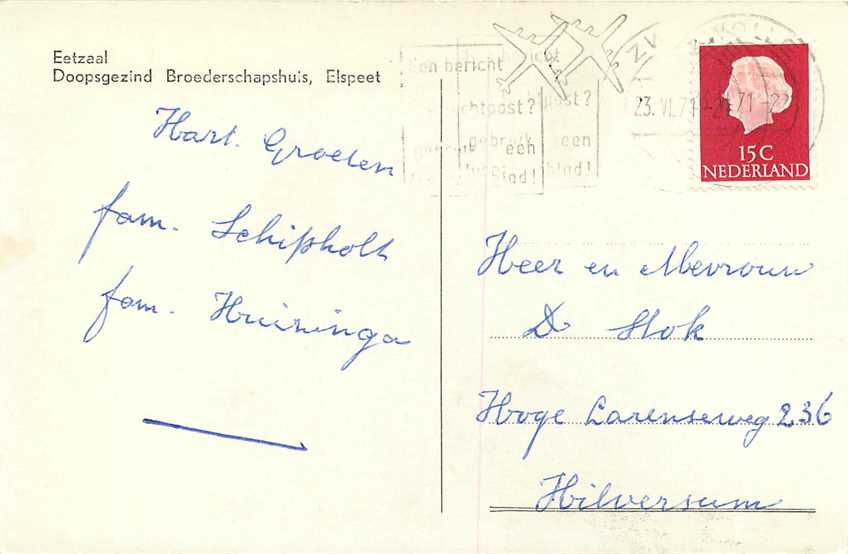 Eetzaal
Doopsgezind Broederschapshuis, Elspeet
Hart. Groeten
fam. Schipholt
fam. Huizinga
Een bericht
bericht
chtpost?
post?
gebruik
een
een
blad!
23.VI.71
15C
NEDERLAND
Heer en Mevrouw
D Slok
Hoge Larenseweg 236
Hilversum